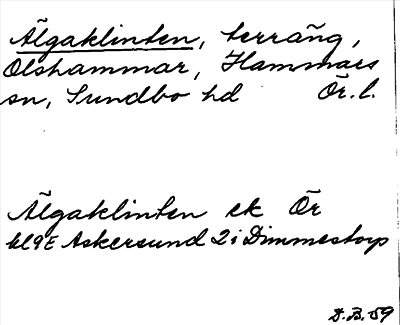 Älgaklinten, terräng,
Olshammar, Hammars
sn, Sundbo hd Ör. l.
Älgaklinten ek Ör
bl 9E Askersund 2i Dimmestorp
D.B. 59